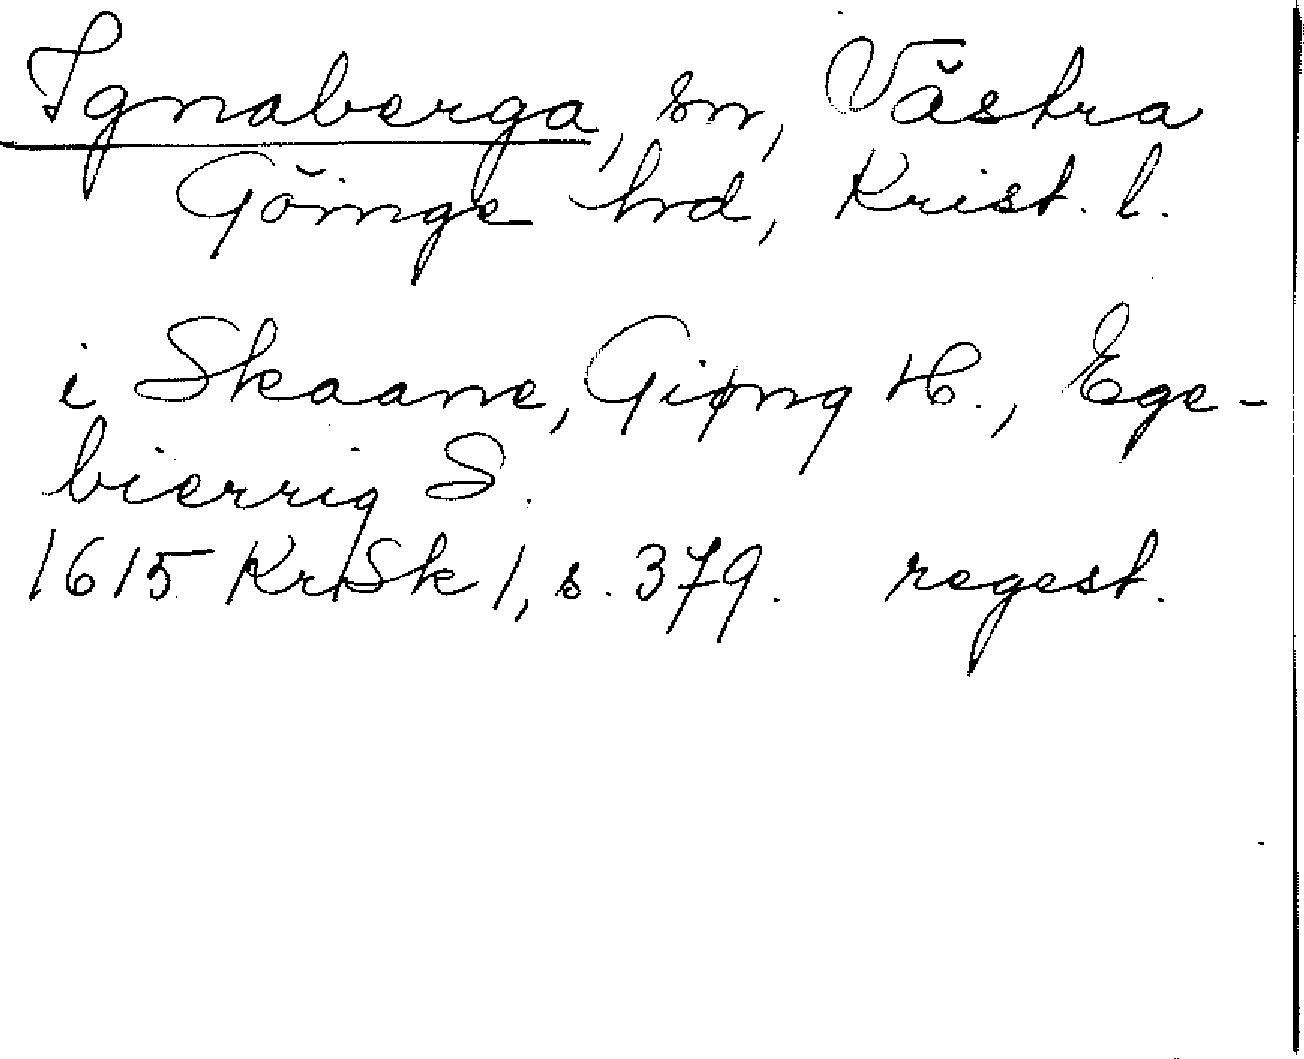 Ignaberga, sn, Västra
Göinge hrd, Krist. l.
i Skaane, Giøng H., Ege-
bierrig S.
1615 KrSk 1, s. 379. regest.